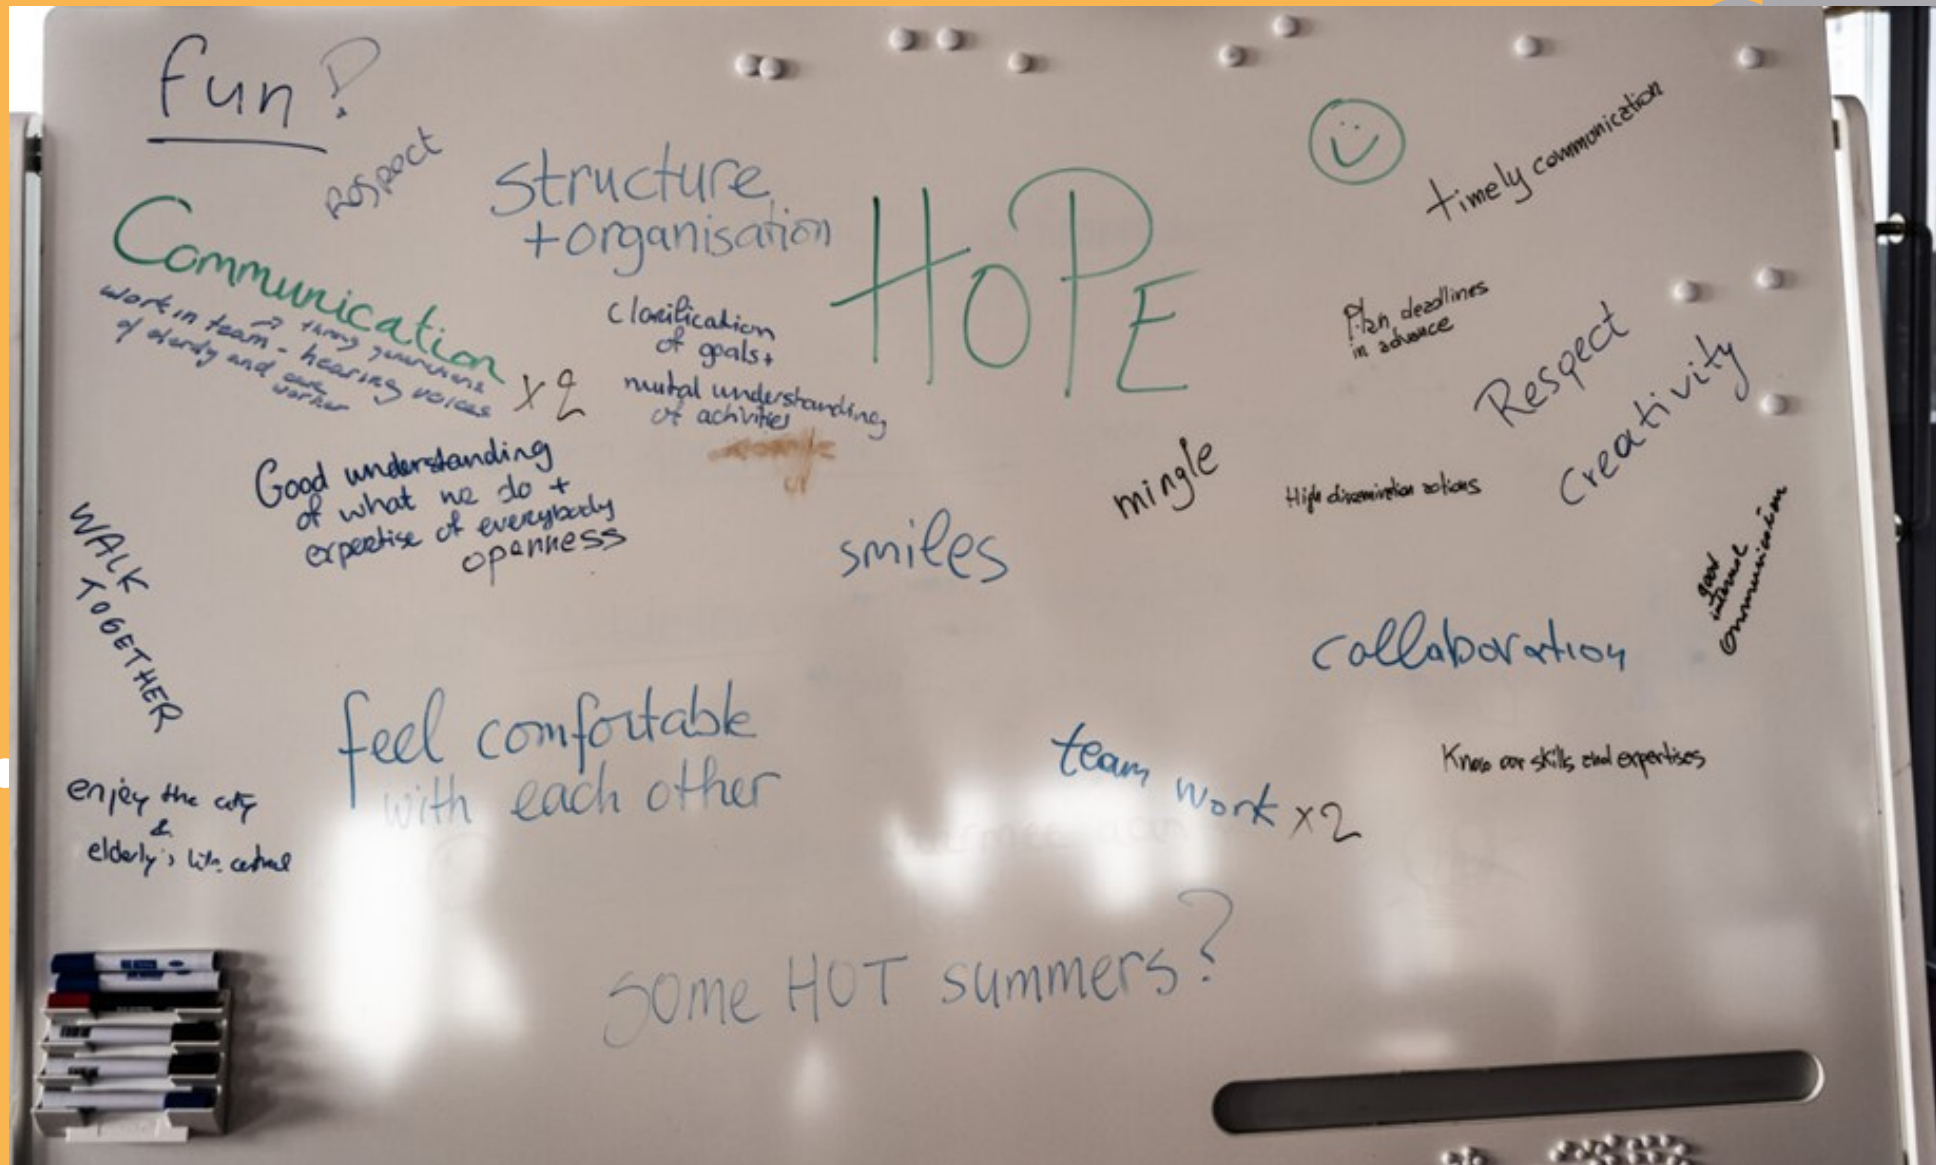 fun?
Respect
structure
+organisation
HOPE
timely communication
Communication
work in team - hearing voices
of elderly and care
worker
x2
Clarification
of goals+
mutual understanding
of activities
Plan deadlines
in advance
Respect
Creativity
Good understanding
of what we do +
expertise of everybody
openness
mingle
High dissemination actions
smiles
WALK
TOGETHER
good
internal
communication
collaboration
feel comfortable
with each other
team work x2
Know our skills and expertises
enjoy the city
&
elderly's
some HOT summers?